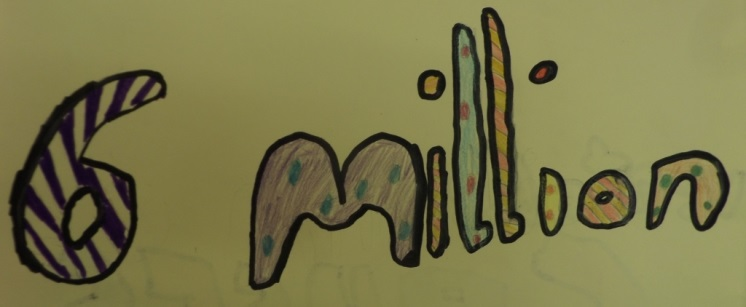 6 million